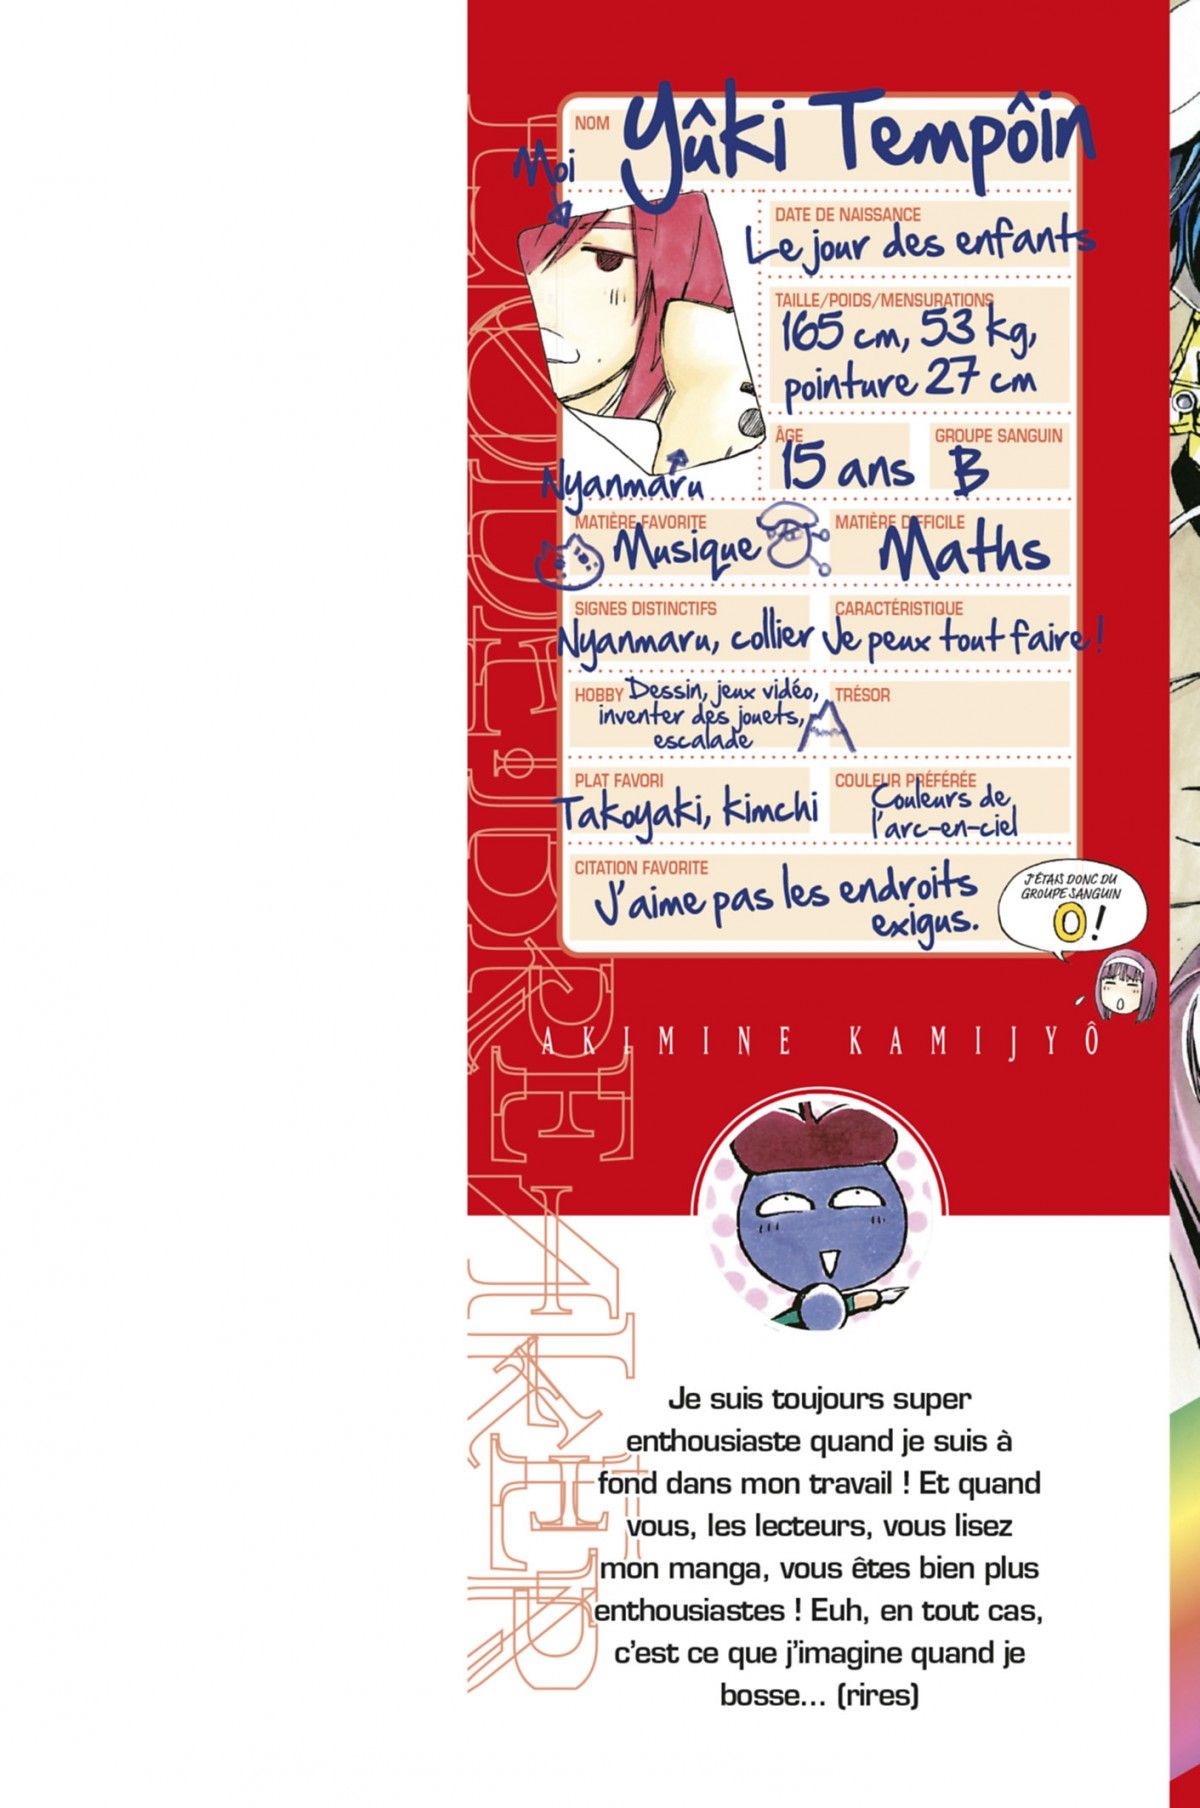 NOM
Yûki Tempôin
Moi
DATE DE NAISSANCE
Le jour des enfants
TAILLE/POIDS/MENSURATIONS
165 cm, 53 kg,
pointure 27 cm
ÂGE
15 ans
GROUPE SANGUIN
B
Nyanmaru
MATIÈRE FAVORITE
Musique
MATIÈRE DIFFICILE
Maths
SIGNES DISTINCTIFS
Nyanmaru, collier
CARACTÉRISTIQUE
Je peux tout faire !
HOBBY Dessin, jeux vidéo,
inventer des jouets,
escalade
TRÉSOR
PLAT FAVORI
Takoyaki, kimchi
COULEUR PRÉFÉRÉE
Couleurs de
l'arc-en-ciel
CITATION FAVORITE
J'aime pas les endroits
exigus.
J'ÉTAIS DONC DU
GROUPE SANGUIN
O !
CODE:BREAKER
AKIMINE KAMIJYÔ
Je suis toujours super
enthousiaste quand je suis à
fond dans mon travail ! Et quand
vous, les lecteurs, vous lisez
mon manga, vous êtes bien plus
enthousiastes ! Euh, en tout cas,
c'est ce que j'imagine quand je
bosse... (rires)